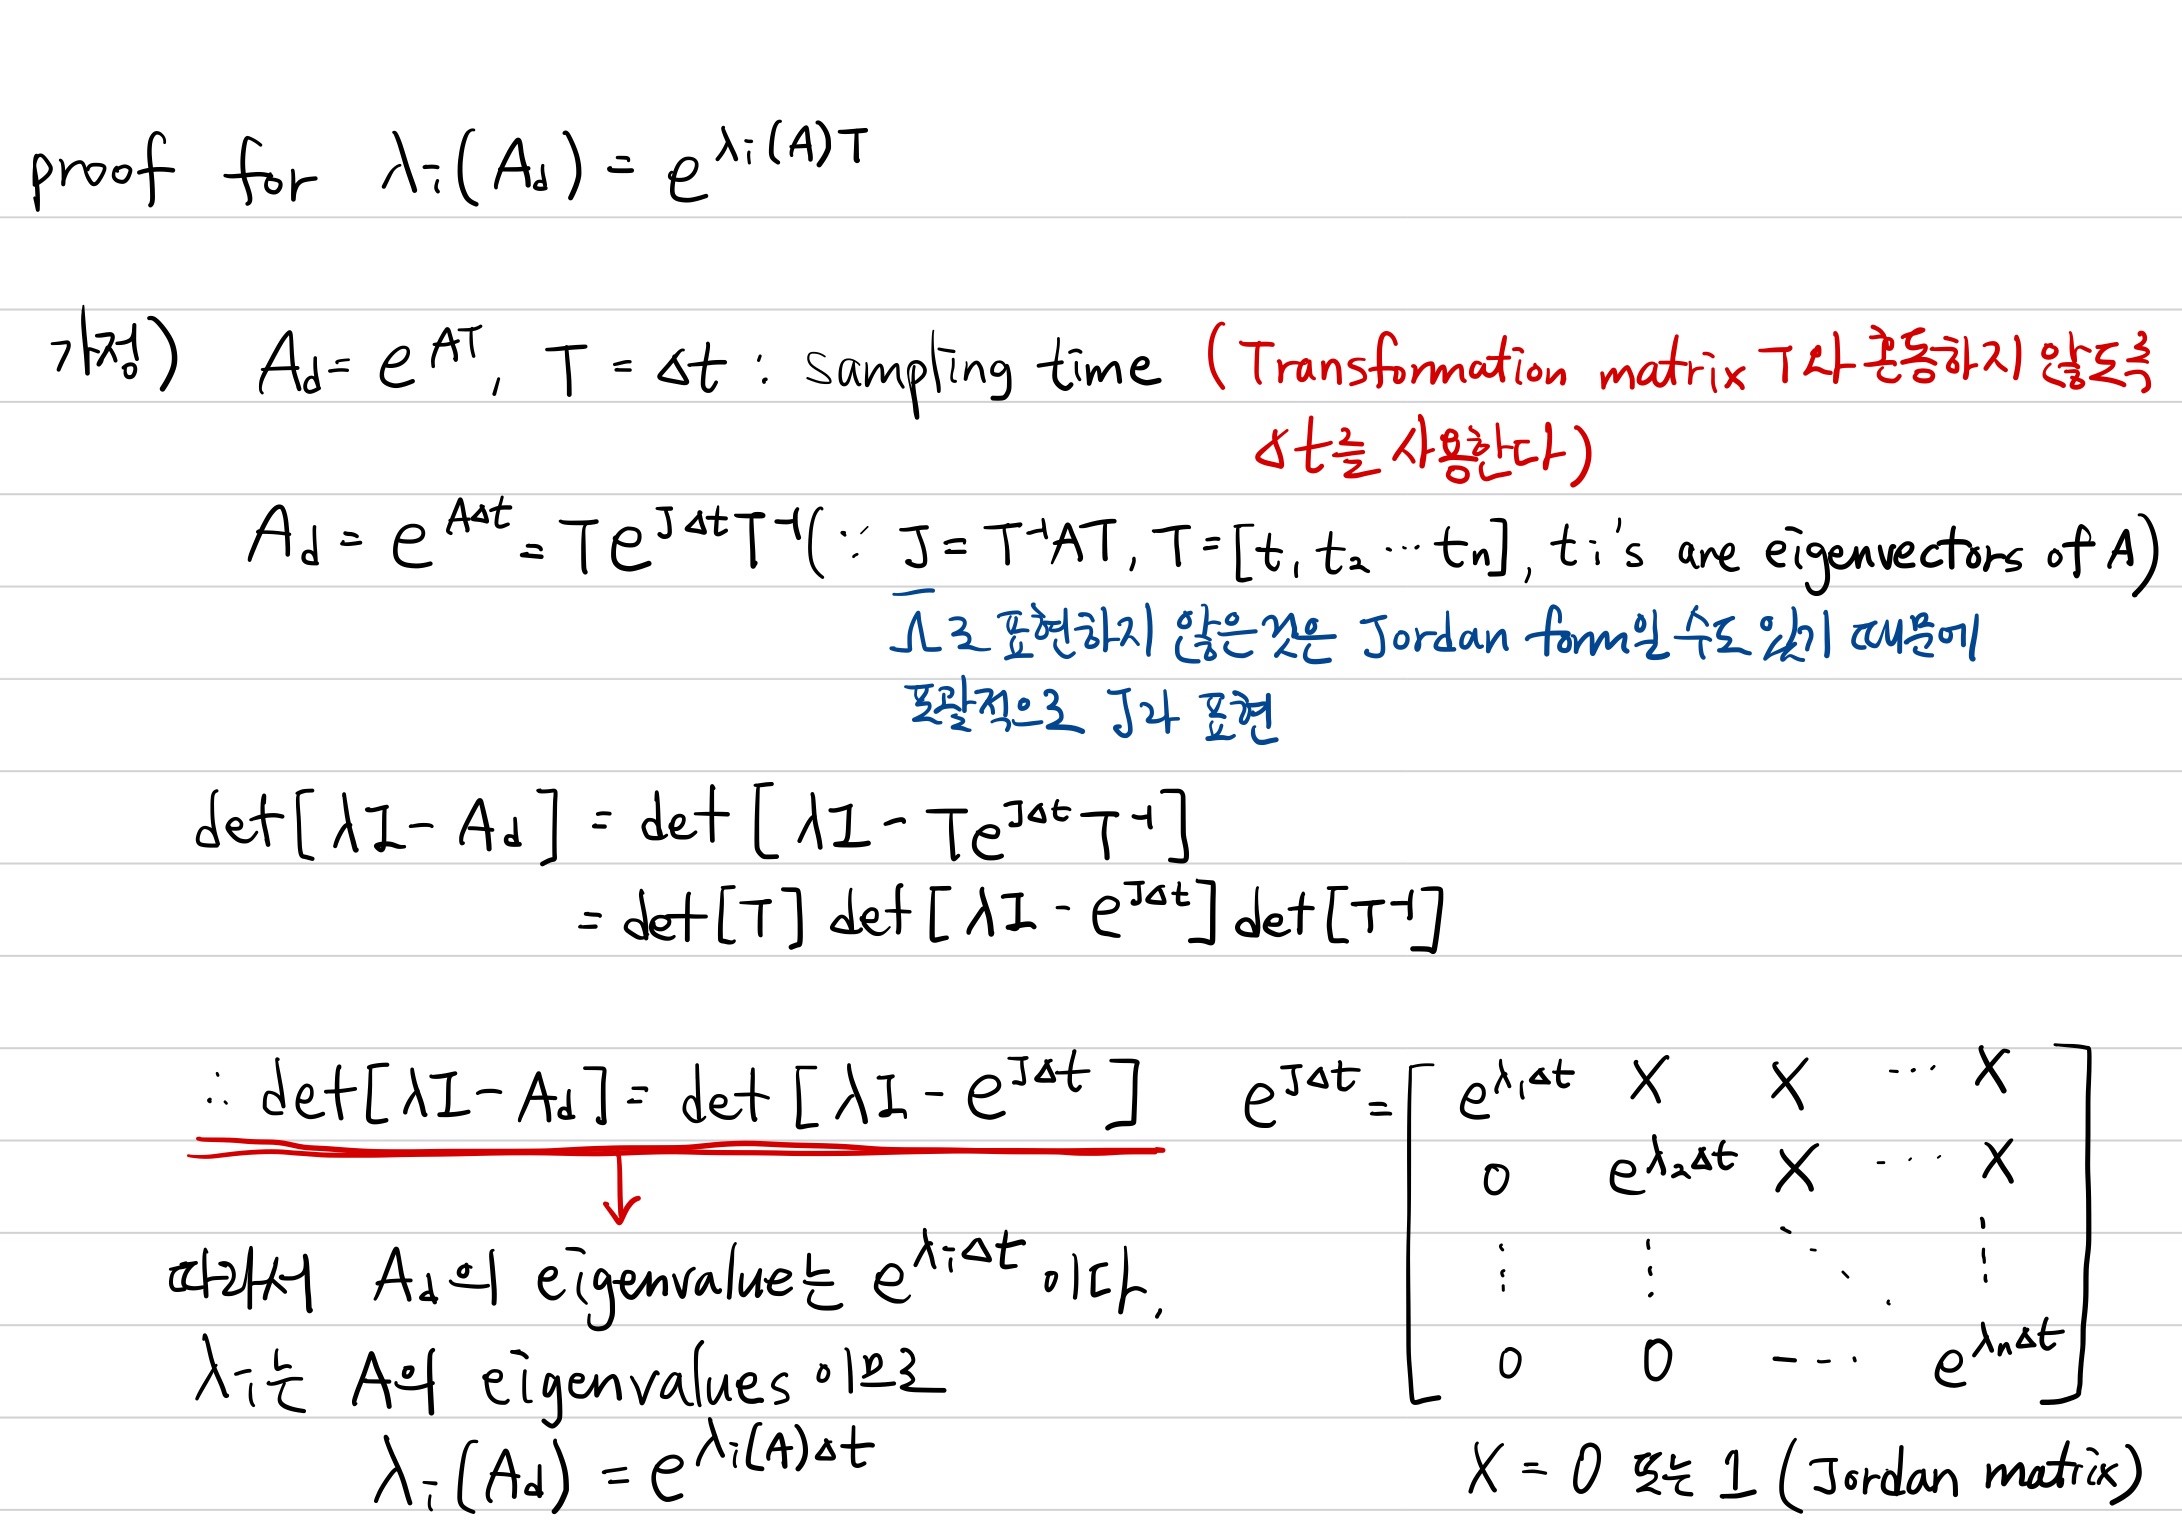 proof for λi(Ad) = e^{λi(A)T}
가정) Ad = e^{AT}, T = Δt : sampling time (Transformation matrix T와 혼동하지 않도록
Δt를 사용한다)
Ad = e^{AΔt} = Te^{JΔt}T⁻¹ (∵ J = T⁻¹AT, T = [t₁ t₂ ⋯ tn], ti's are eigenvectors of A)
Λ로 표현하지 않은 것은 Jordan form일 수도 있기 때문에
포괄적으로 J라 표현
det[λI - Ad] = det[λI - Te^{JΔt}T⁻¹]
= det[T] det[λI - e^{JΔt}] det[T⁻¹]
∴ det[λI - Ad] = det[λI - e^{JΔt}]
따라서 Ad의 eigenvalue는 e^{λiΔt} 이다.
λi는 A의 eigenvalues 이므로
λi(Ad) = e^{λi(A)Δt}
e^{JΔt} = [ e^{λ₁Δt} X X ⋯ X
0 e^{λ₂Δt} X ⋯ X
⋮ ⋮ ⋱ ⋮
0 0 ⋯ e^{λnΔt} ]
X = 0 또는 1 (Jordan matrix)